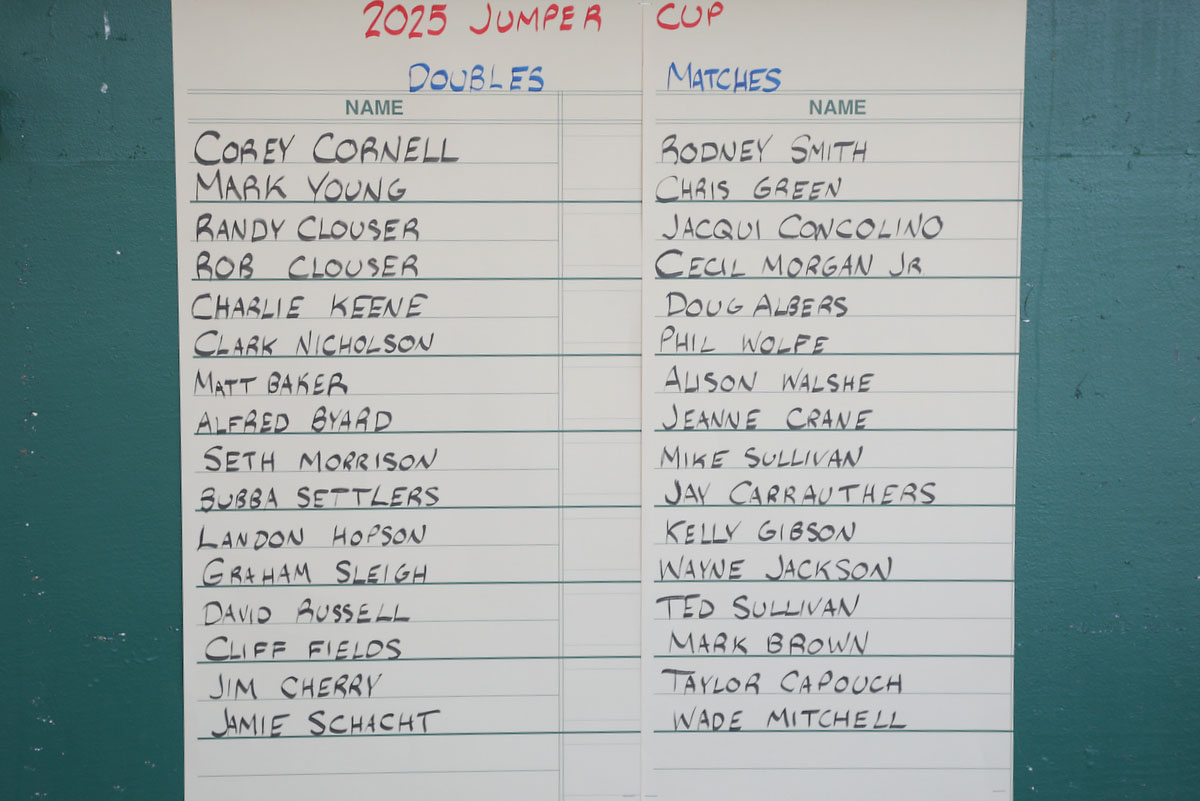 2025 JUMPER CUP
DOUBLES MATCHES
NAME NAME
COREY CORNELL RODNEY SMITH
MARK YOUNG CHRIS GREEN
RANDY CLOUSER JACQUI CONCOLINO
ROB CLOUSER CECIL MORGAN JR
CHARLIE KEENE DOUG ALBERS
CLARK NICHOLSON PHIL WOLFE
MATT BAKER ALISON WALSHE
ALFRED BYARD JEANNE CRANE
SETH MORRISON MIKE SULLIVAN
BUBBA SETTLERS JAY CARRAUTHERS
LANDON HOPSON KELLY GIBSON
GRAHAM SLEIGH WAYNE JACKSON
DAVID RUSSELL TED SULLIVAN
CLIFF FIELDS MARK BROWN
JIM CHERRY TAYLOR CAPOUCH
JAMIE SCHACHT WADE MITCHELL